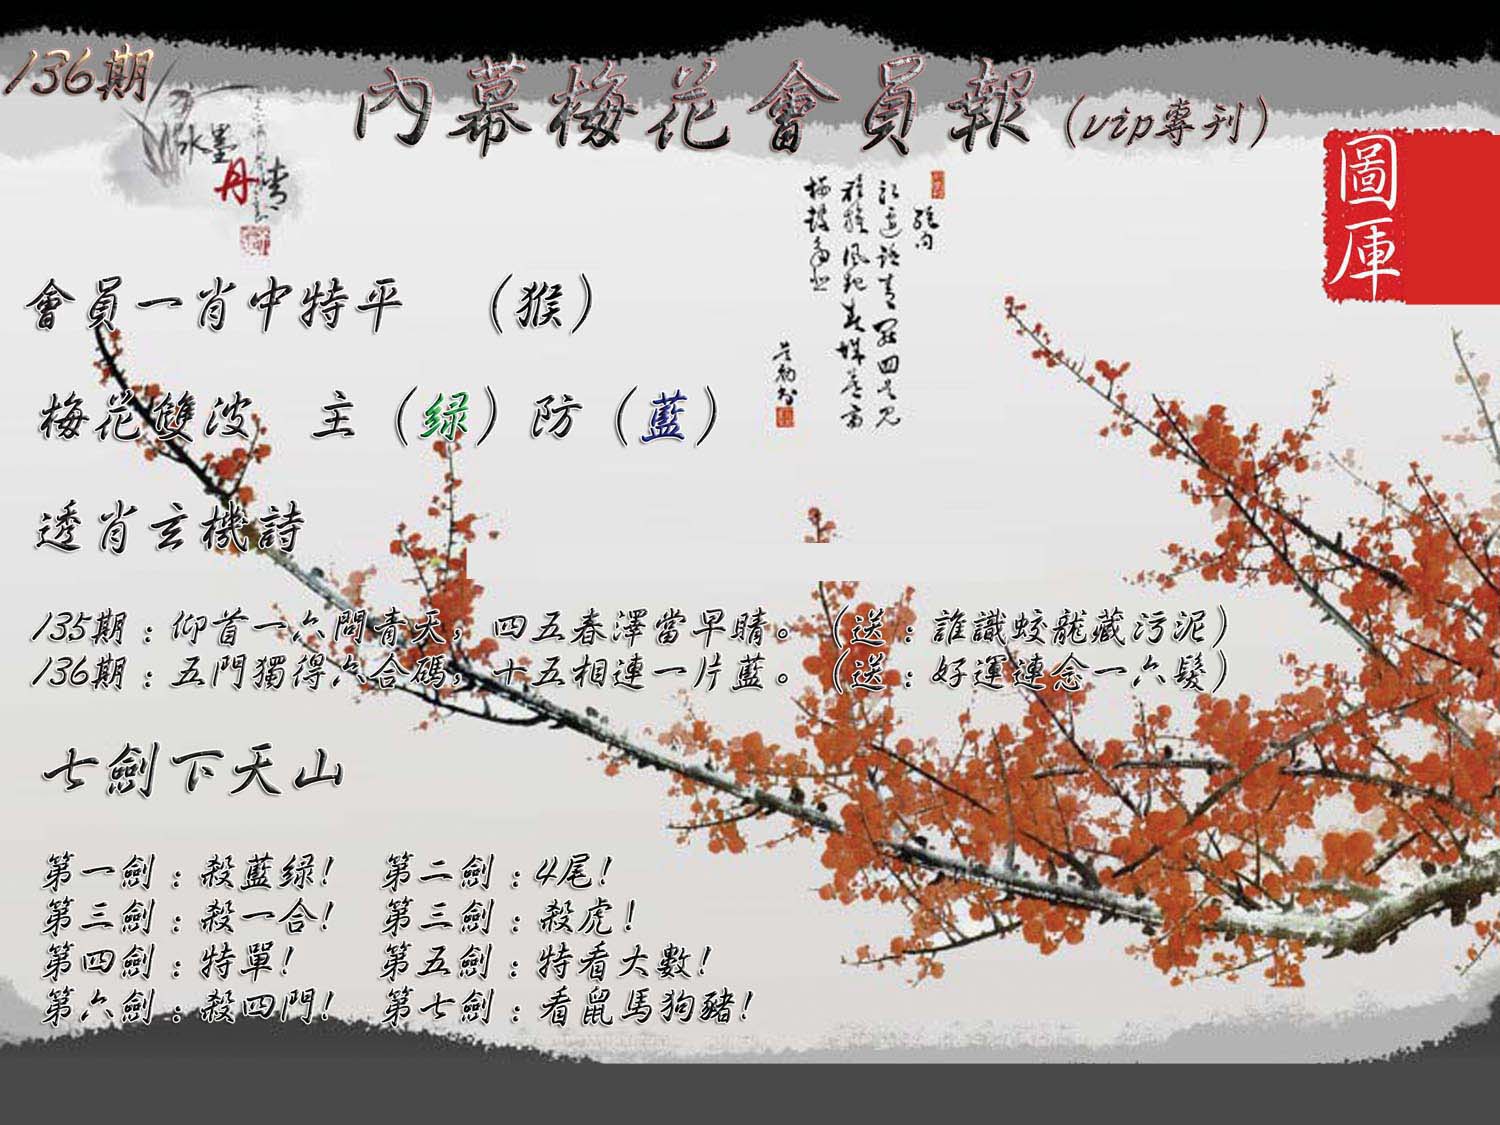 136期
內幕梅花會員報(vip專刊)
水墨
丹青
圖庫
會員一肖中特平 (猴)
梅花雙波 主(绿)防(藍)
透肖玄機詩
135期:仰首一六問青天,四五春澤當早睛。(送:誰識蛟龍藏污泥)
136期:五門獨得六合碼,十五相連一片藍。(送:好運連念一六髮)
七劍下天山
第一劍:殺藍绿! 第二劍:4尾!
第三劍:殺一合! 第三劍:殺虎!
第四劍:特單! 第五劍:特看大數!
第六劍:殺四門! 第七劍:看鼠馬狗豬!